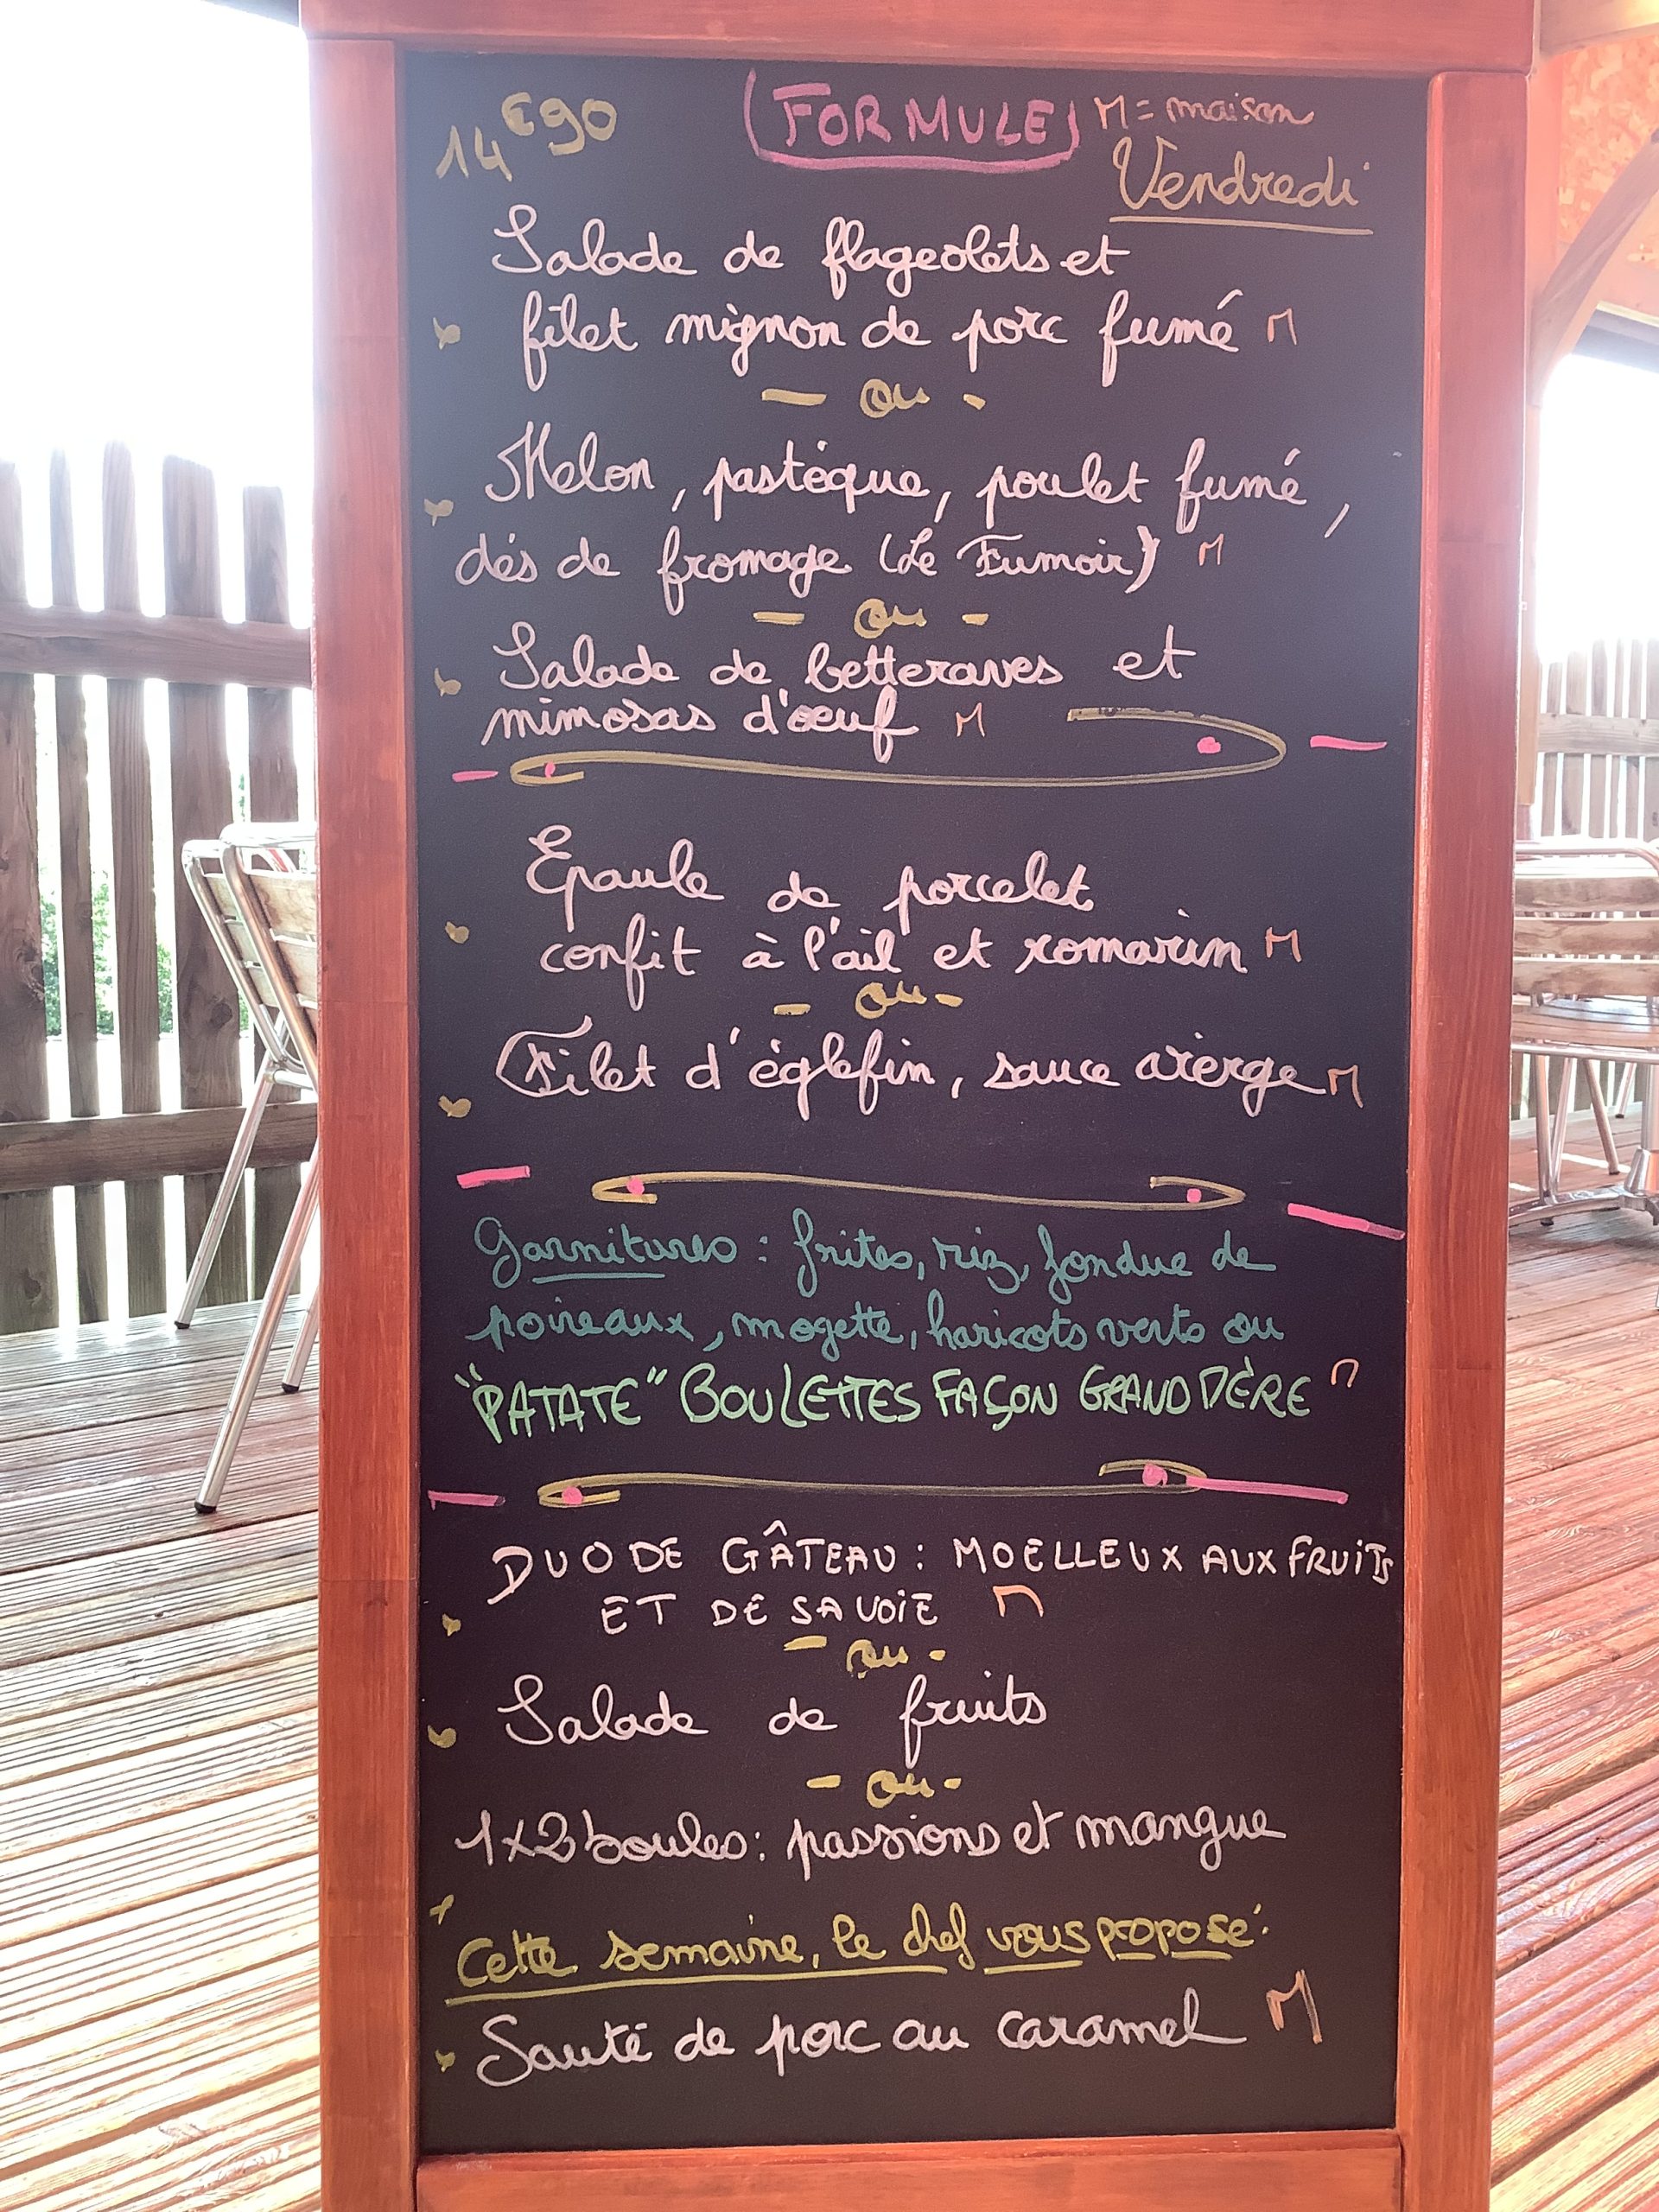 14€90 FORMULE M = maison
Vendredi
Salade de flageolets et
filet mignon de porc fumé M
- ou -
Melon, pastèque, poulet fumé,
dés de fromage (Le Fumoir) M
- ou -
Salade de betteraves et
mimosas d'œuf M
Epaule de porcelet
confit à l'ail et romarin M
- ou -
Filet d'églefin, sauce vierge M
Garnitures : frites, riz, fondue de
poireaux, mogette, haricots verts ou
"PATATE" BOULETTES FAÇON GRAND PÈRE M
DUO DE GÂTEAU : MOELLEUX AUX FRUITS
ET DE SAVOIE M
- ou -
Salade de fruits
- ou -
1x2 boules : passions et mangue
Cette semaine, le chef vous propose :
Sauté de porc au caramel M